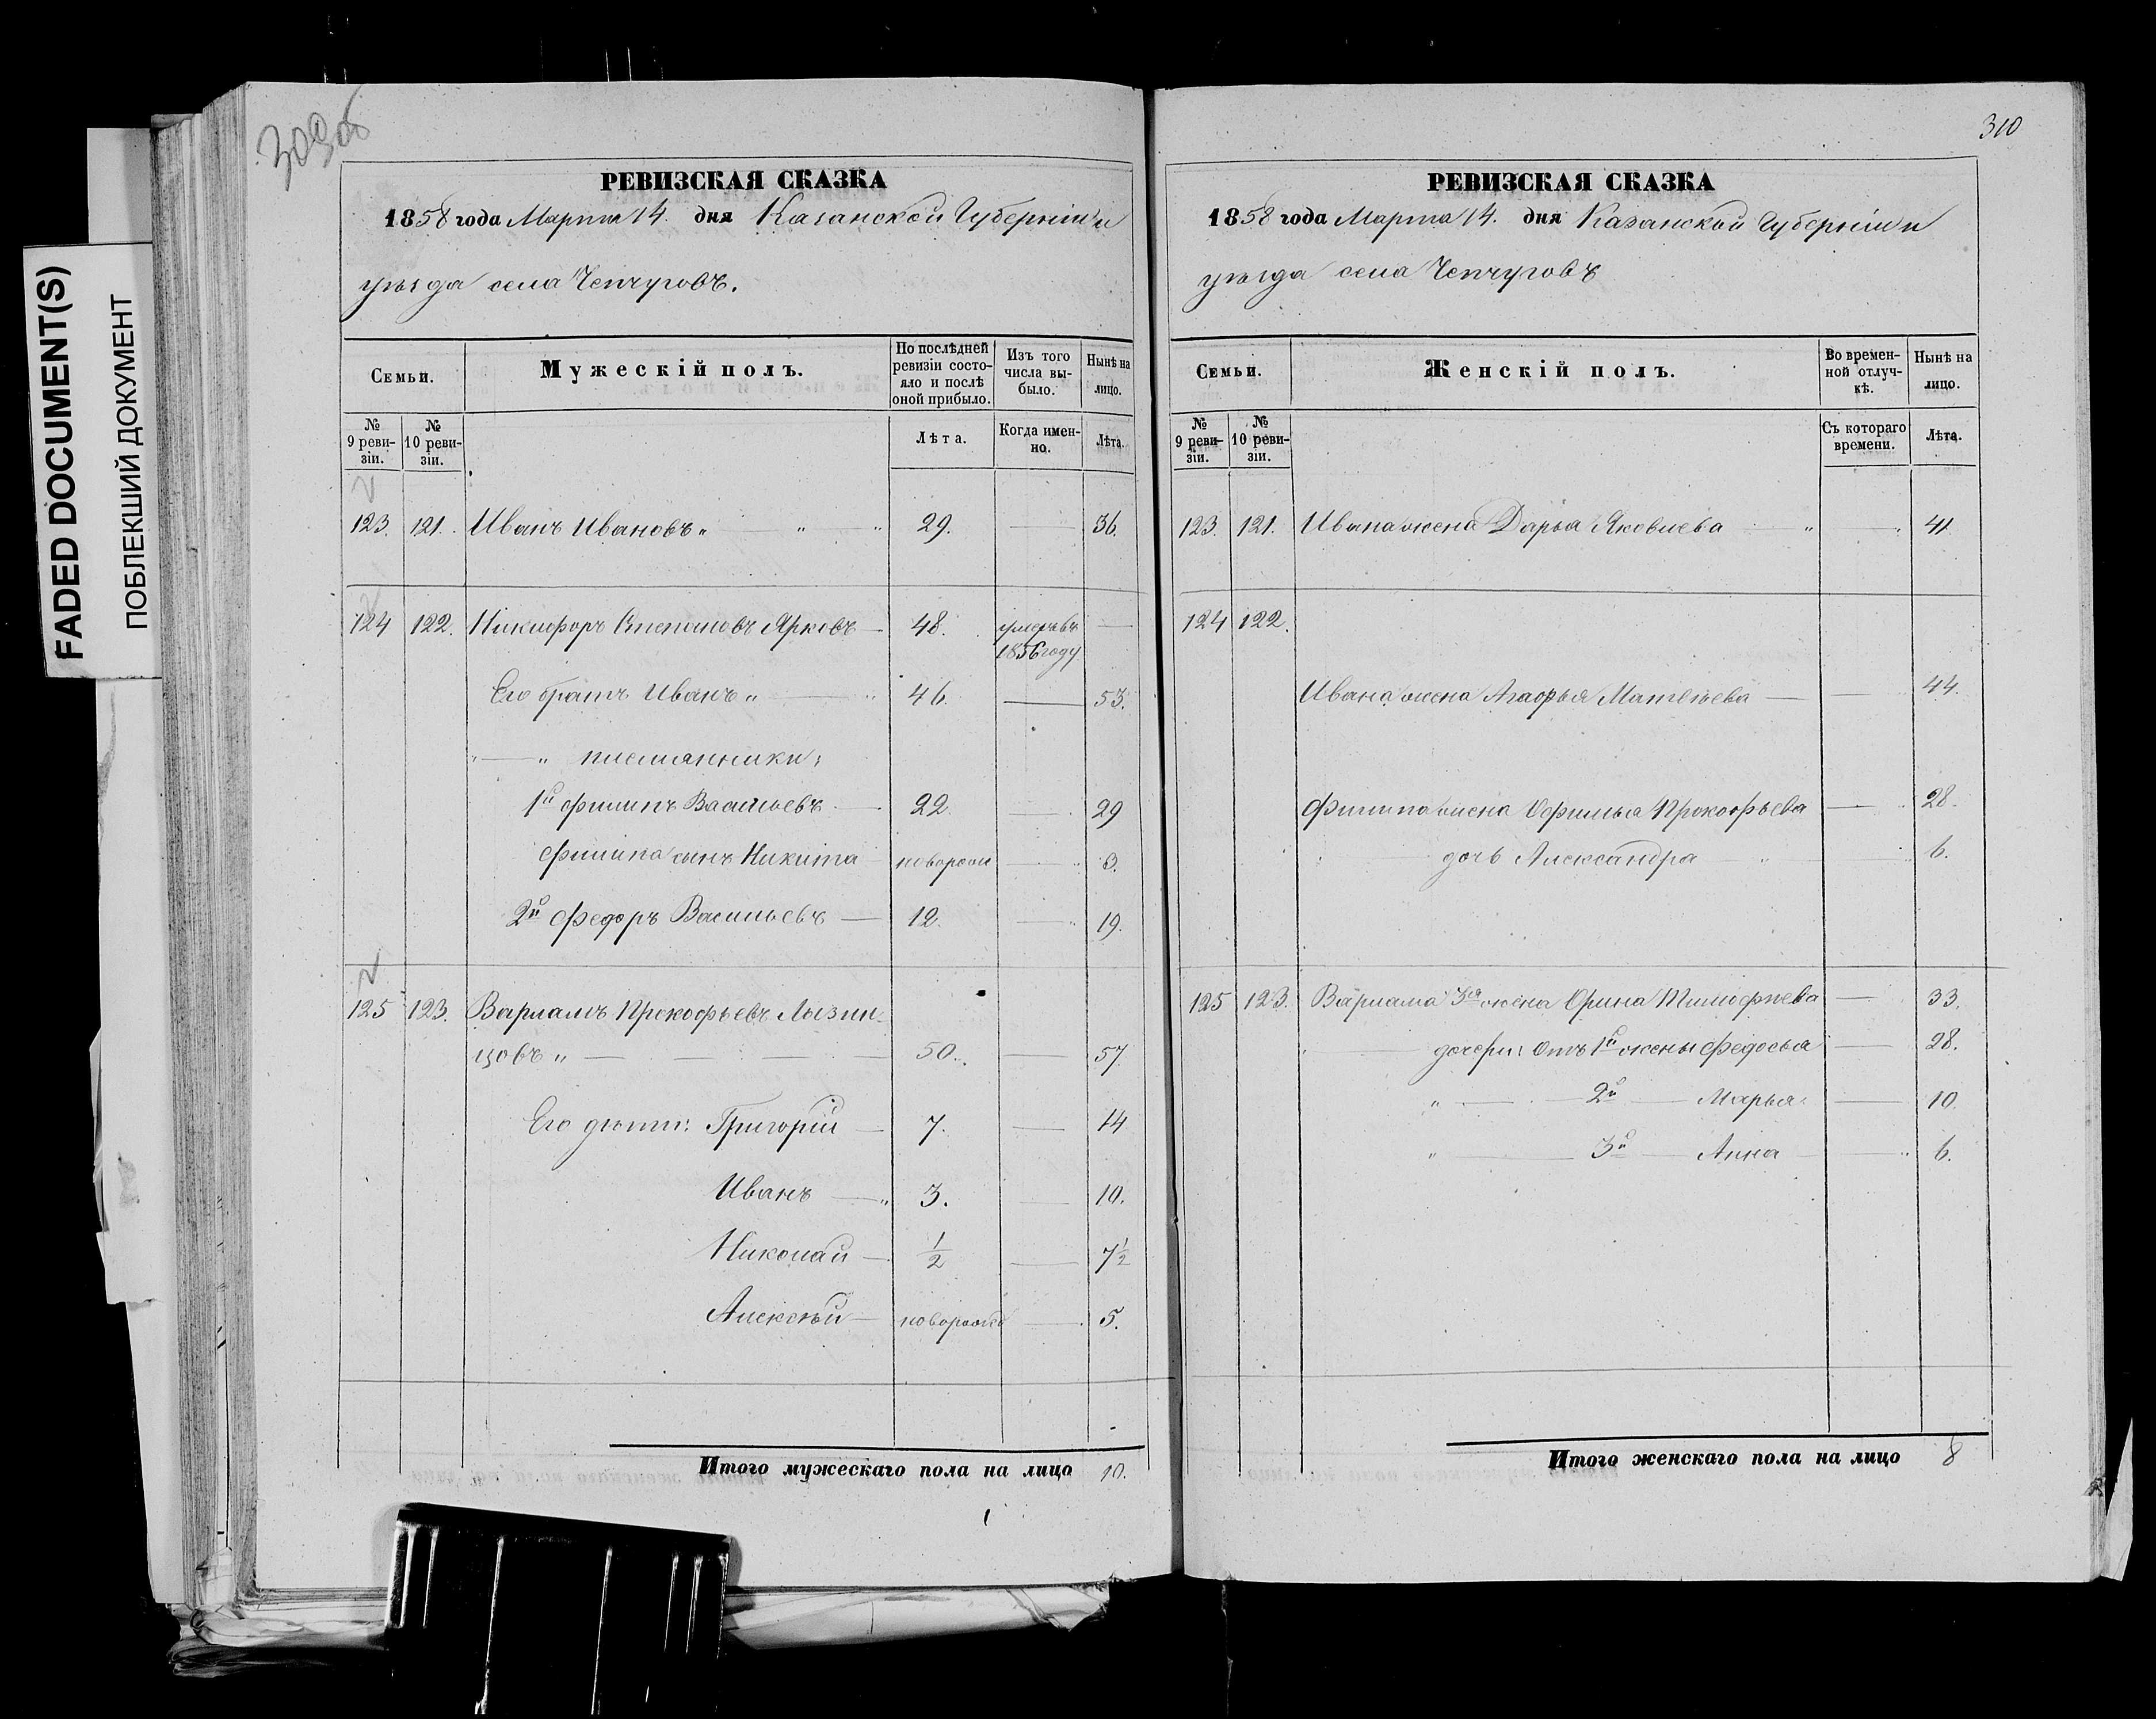 FADED DOCUMENT(S)
ПОБЛЕКШИЙ ДОКУМЕНТ
309об
РЕВИЗСКАЯ СКАЗКА
1858 года Марта 14. дня Казанской Губерніи и
уѣзда села Чепчуговъ.
Семьи.
Мужескій полъ.
По послѣдней ревизіи состояло и послѣ оной прибыло.
Изъ того числа выбыло.
Нынѣ на лицо.
№ 9 ревизіи.
№ 10 ревизіи.
Лѣта.
Когда именно.
Лѣта.
123. 121. Иванъ Ивановъ „ — „ „ 29. — 36.
124 122. Никифоръ Степановъ Ярковъ — 48. умеръ въ —
1856 году
Его братъ Иванъ „ — „ 46. — 53.
„ — „ племянники:
1й Филипъ Васильевъ — 22. — 29
Филипа сынъ Никита новорожд — 3.
2й Федоръ Васильевъ — 12. — 19.
125 123. Варламъ Прокофьевъ Лызин-
цовъ „ — — — 50. — 57
Его дѣти: Григорій — 7. — 14
Иванъ — „ 3. — 10.
Николай — 1/2 — 7 1/2
Алексѣй — новорожд — 5.
Итого мужескаго пола на лицо 10.
310
РЕВИЗСКАЯ СКАЗКА
1858 года Марта 14. дня Казанской Губерніи и
уѣзда села Чепчуговъ
Семьи.
Женскій полъ.
Во временной отлучкѣ.
Нынѣ на лицо.
№ 9 ревизіи.
№ 10 ревизіи.
Съ котораго времени.
Лѣта.
123. 121. Ивана жена Дарья Яковлева — „ — „ 41
124 122.
Ивана жена Агафья Матвѣева — — 44.
Филипа жена Офимья Прокофьева — 28.
дочь Александра — „ — 6.
125 123. Варлама 3я жена Орина Тимофѣева — 33.
— дочери: Отъ 1й жены Федосья — 28.
„ — 2й — Марья — 10.
„ — 3й — Анна — „ 6.
Итого женскаго пола на лицо 8